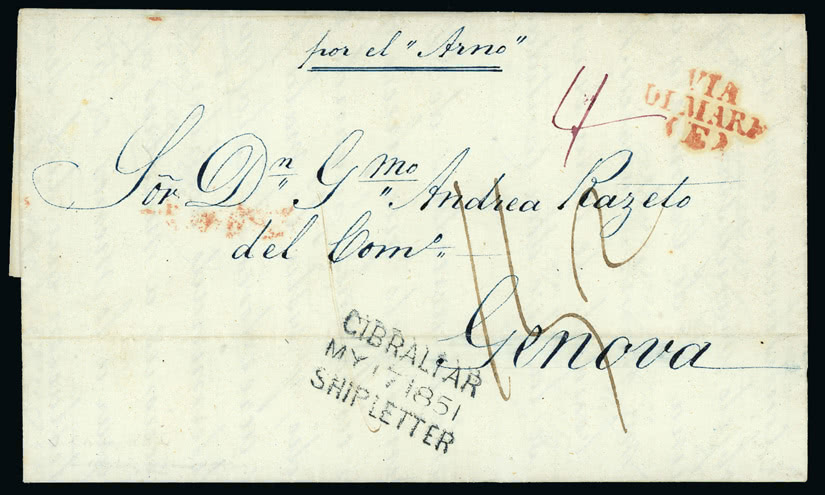 por el "Arno"
4
VIA
DI MARE
(E)
Sōr Dn Gmo Andrea Razeto
del Como
Genova
GIBRALTAR
MY 17 1851
SHIP LETTER